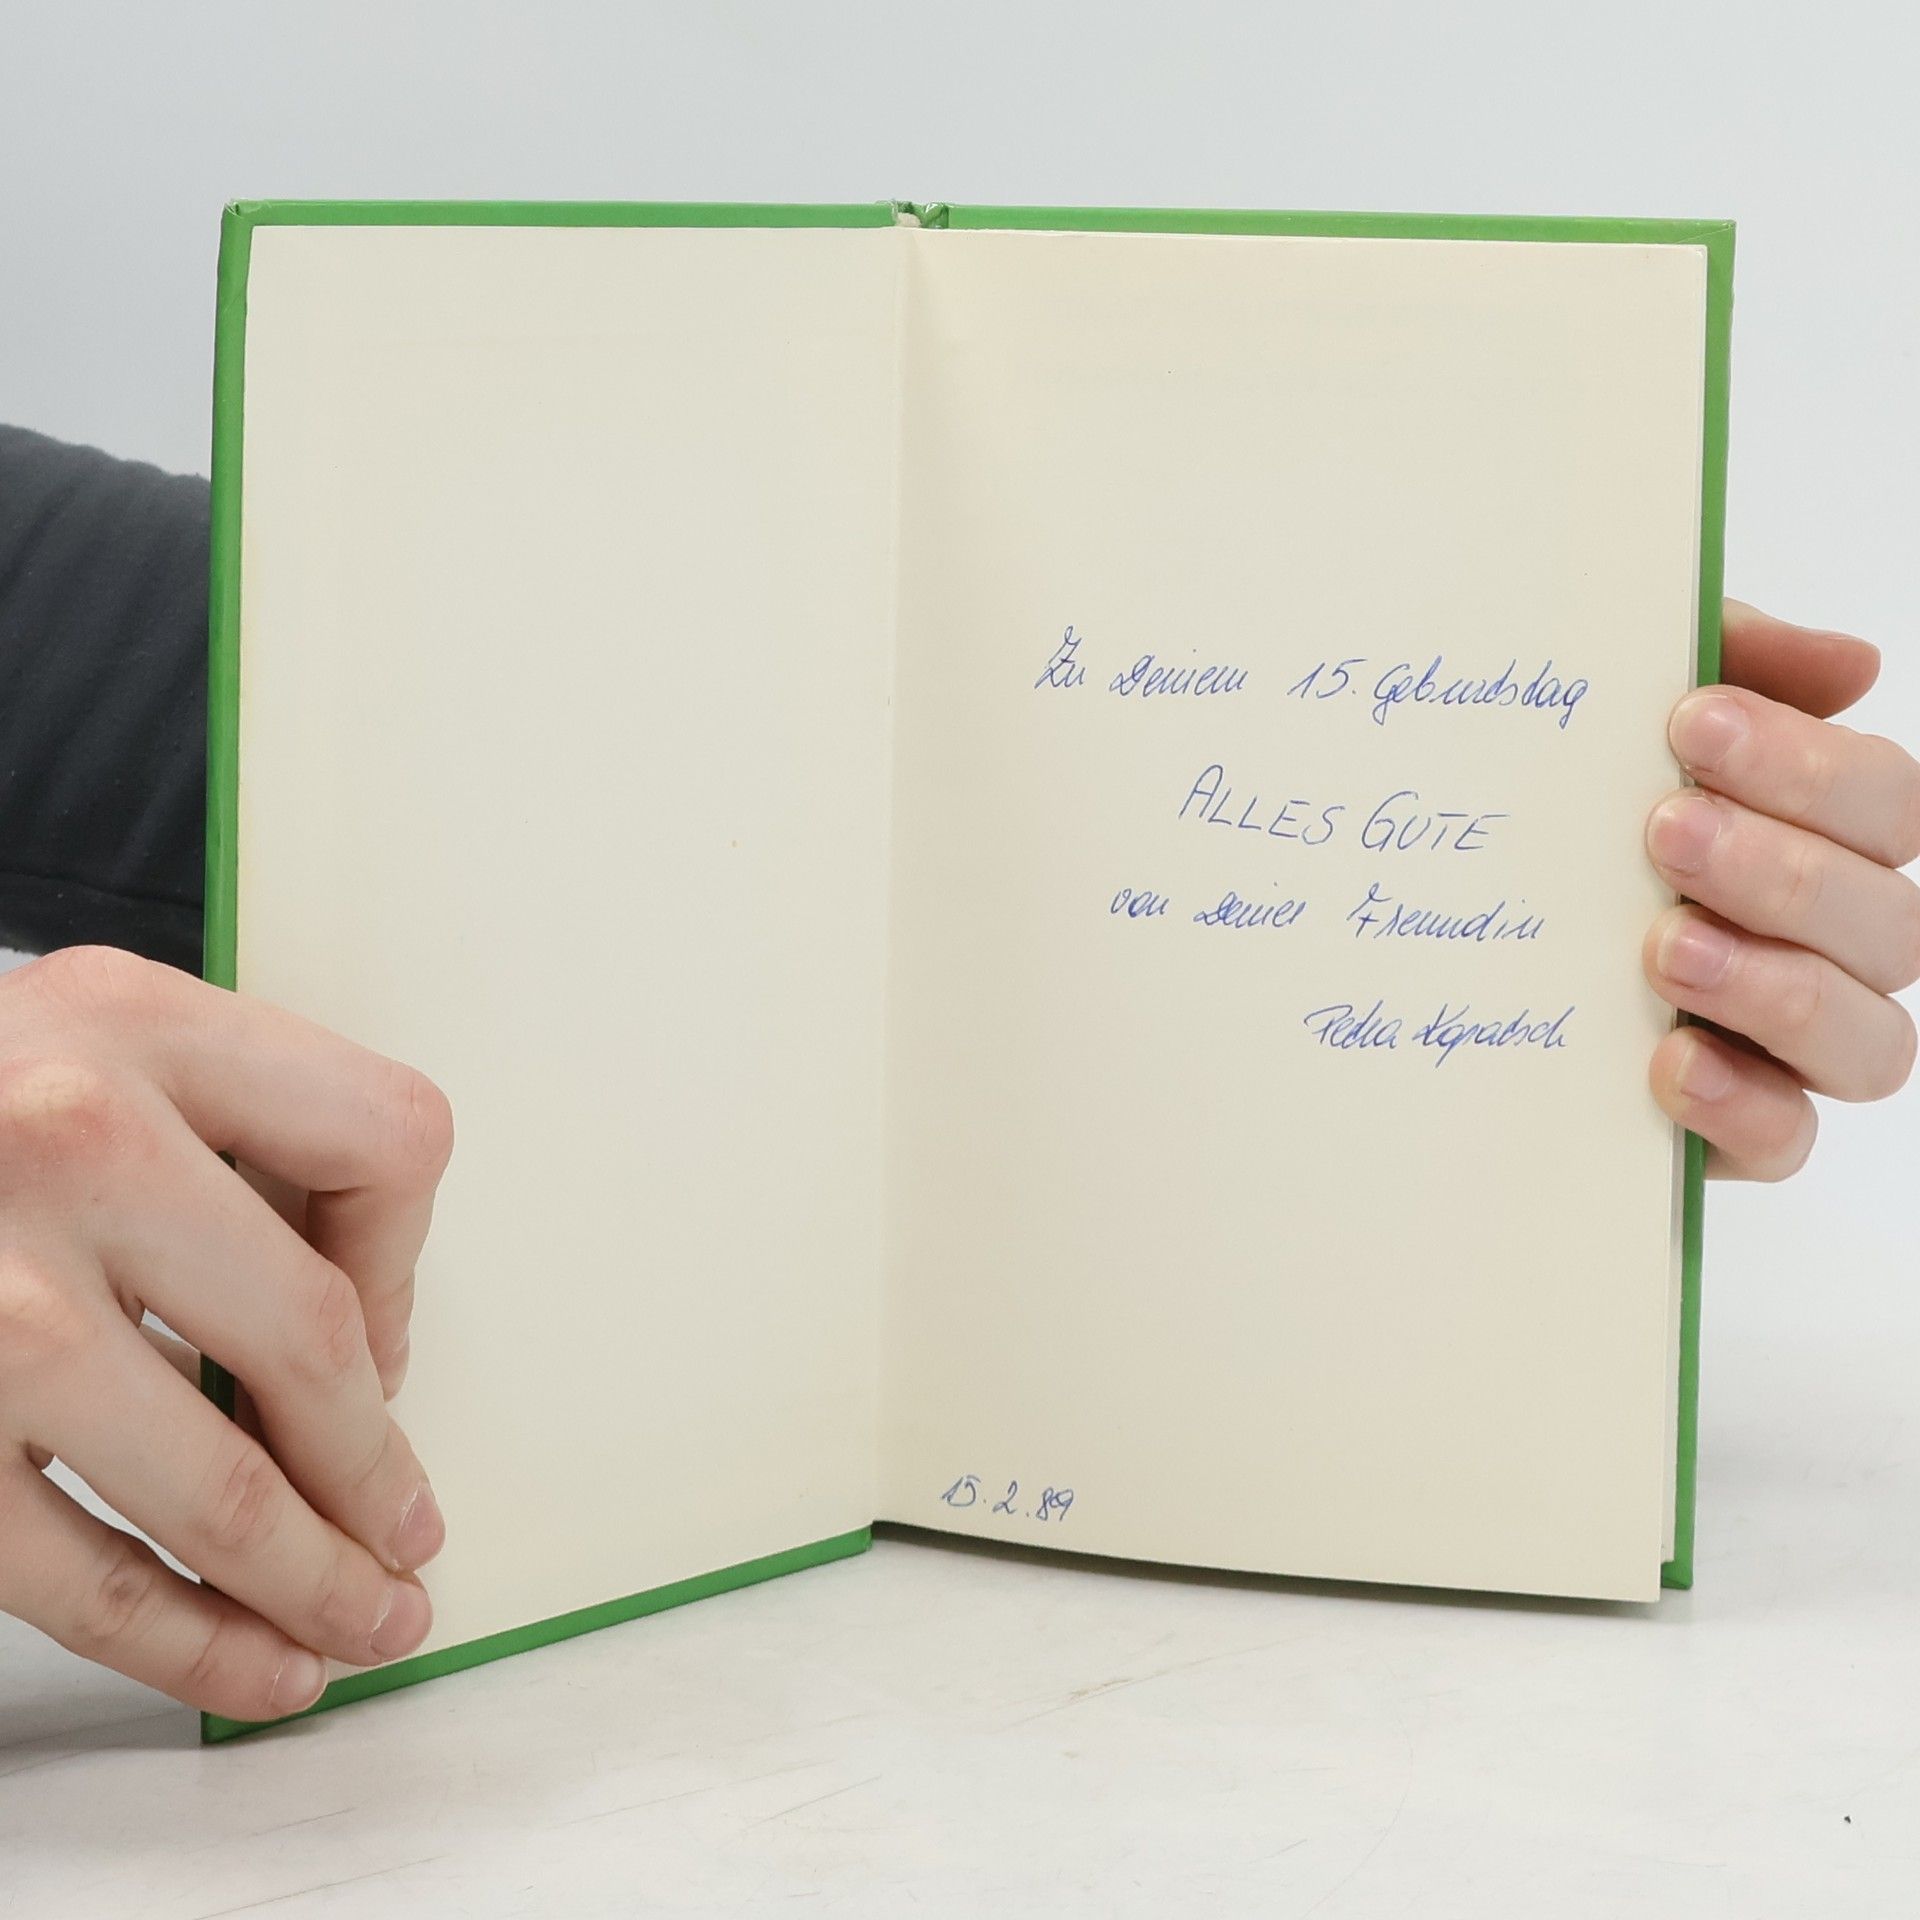 Zu Deinem 15. Geburtstag
ALLES GUTE
von Deiner Freundin
Petra
15.2.89